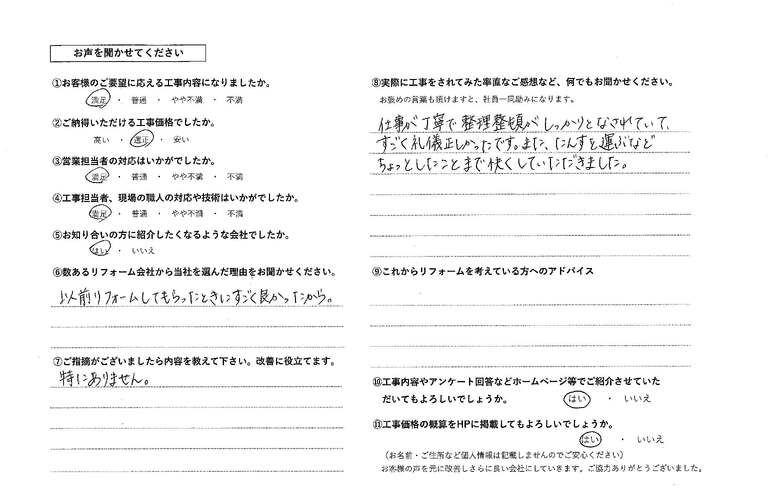 お声を聞かせてください
①お客様のご要望に応える工事内容になりましたか。
満足 ・ 普通 ・ やや不満 ・ 不満
②ご納得いただける工事価格でしたか。
高い ・ 適正 ・ 安い
③営業担当者の対応はいかがでしたか。
満足 ・ 普通 ・ やや不満 ・ 不満
④工事担当者、現場の職人の対応や技術はいかがでしたか。
満足 ・ 普通 ・ やや不満 ・ 不満
⑤お知り合いの方に紹介したくなるような会社でしたか。
はい ・ いいえ
⑥数あるリフォーム会社から当社を選んだ理由をお聞かせください。
以前リフォームしてもらったときにすごく良かったから。
⑦ご指摘がございましたら内容を教えて下さい。改善に役立てます。
特にありません。
⑧実際に工事をされてみた率直なご感想など、何でもお聞かせください。
お褒めの言葉も頂けますと、社員一同励みになります。
仕事が丁寧で整理整頓がしっかりとなされていて、
すごく礼儀正しかったです。また、たんすを運ぶなど
ちょっとしたことまで快くしていただきました。
⑨これからリフォームを考えている方へのアドバイス
⑩工事内容やアンケート回答などホームページ等でご紹介させていた
だいてもよろしいでしょうか。 はい ・ いいえ
⑪工事価格の概算をHPに掲載してもよろしいでしょうか。
はい ・ いいえ
(お名前・ご住所など個人情報は記載しませんのでご安心ください)
お客様の声を元に改善しさらに良い会社にしていきます。ご協力ありがとうございました。